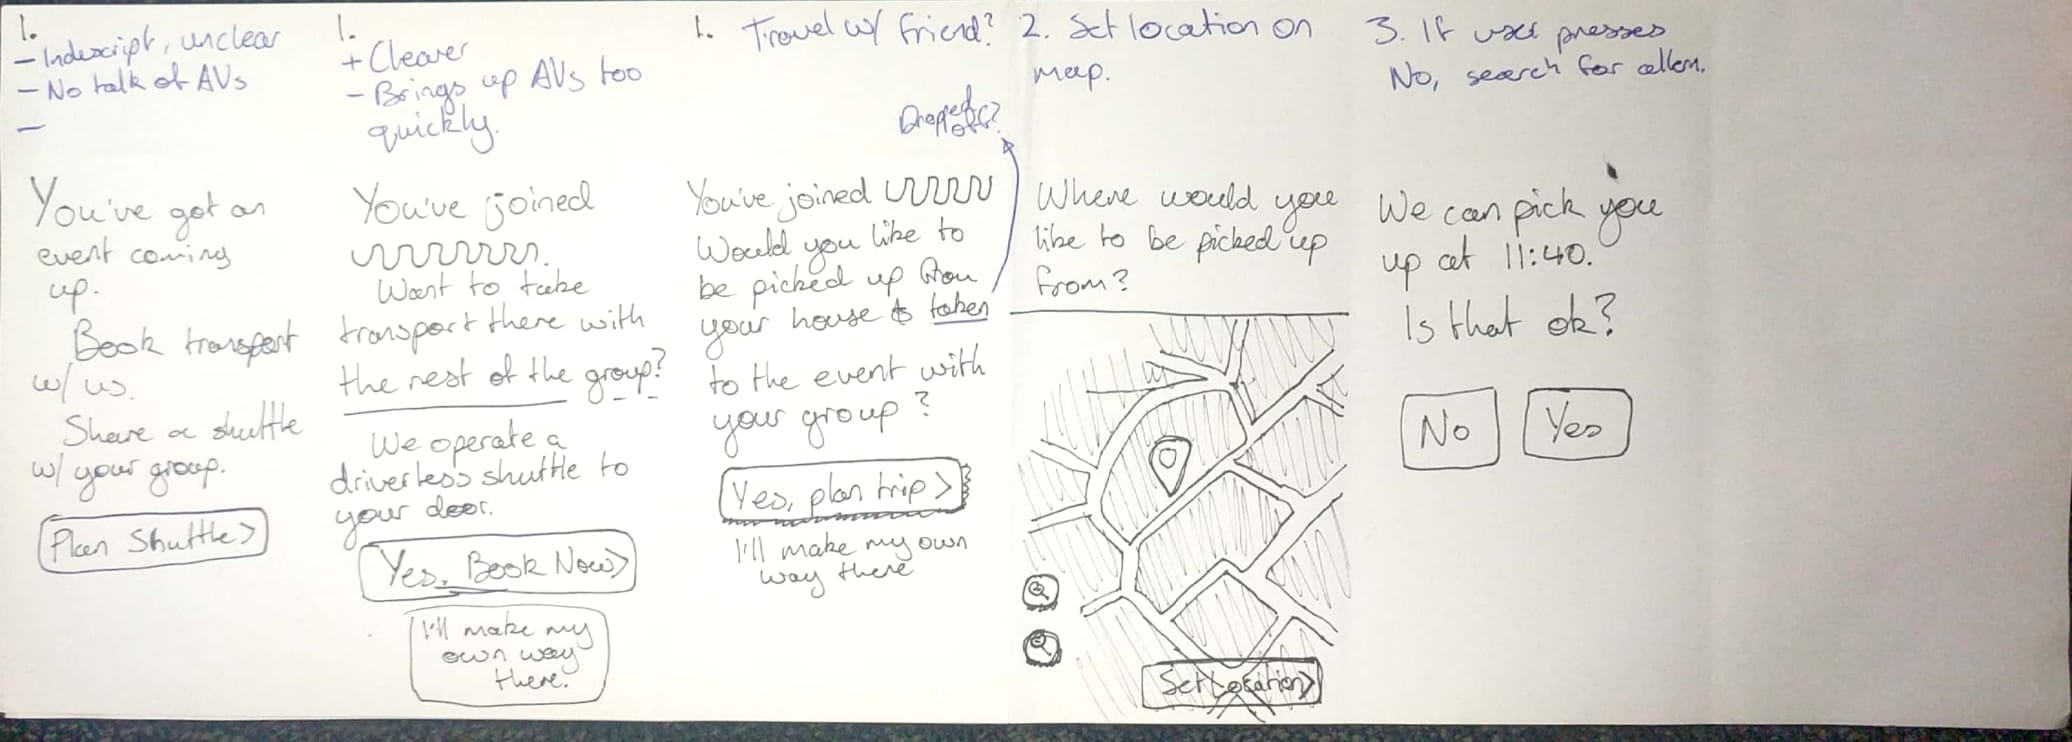 1.
- Indescript, unclear
- No talk of AVs
-
You've got an
event coming
up.
Book transport
w/ us.
Share a shuttle
w/ your group.
Plan Shuttle >
1.
+ Clearer
- Brings up AVs too
quickly.
You've joined
Want to take
transport there with
the rest of the group?
We operate a
driverless shuttle to
your door.
Yes, Book Now >
I'll make my
own way
there.
1. Travel w/ friend?
Dropped
off?
You've joined
Would you like to
be picked up from
your house & taken
to the event with
your group?
Yes, plan trip >
I'll make my own
way there
2. Set location on
map.
Where would you
like to be picked up
from?
Set Location >
3. If user presses
No, search for altern.
We can pick you
up at 11:40.
Is that ok?
No
Yes